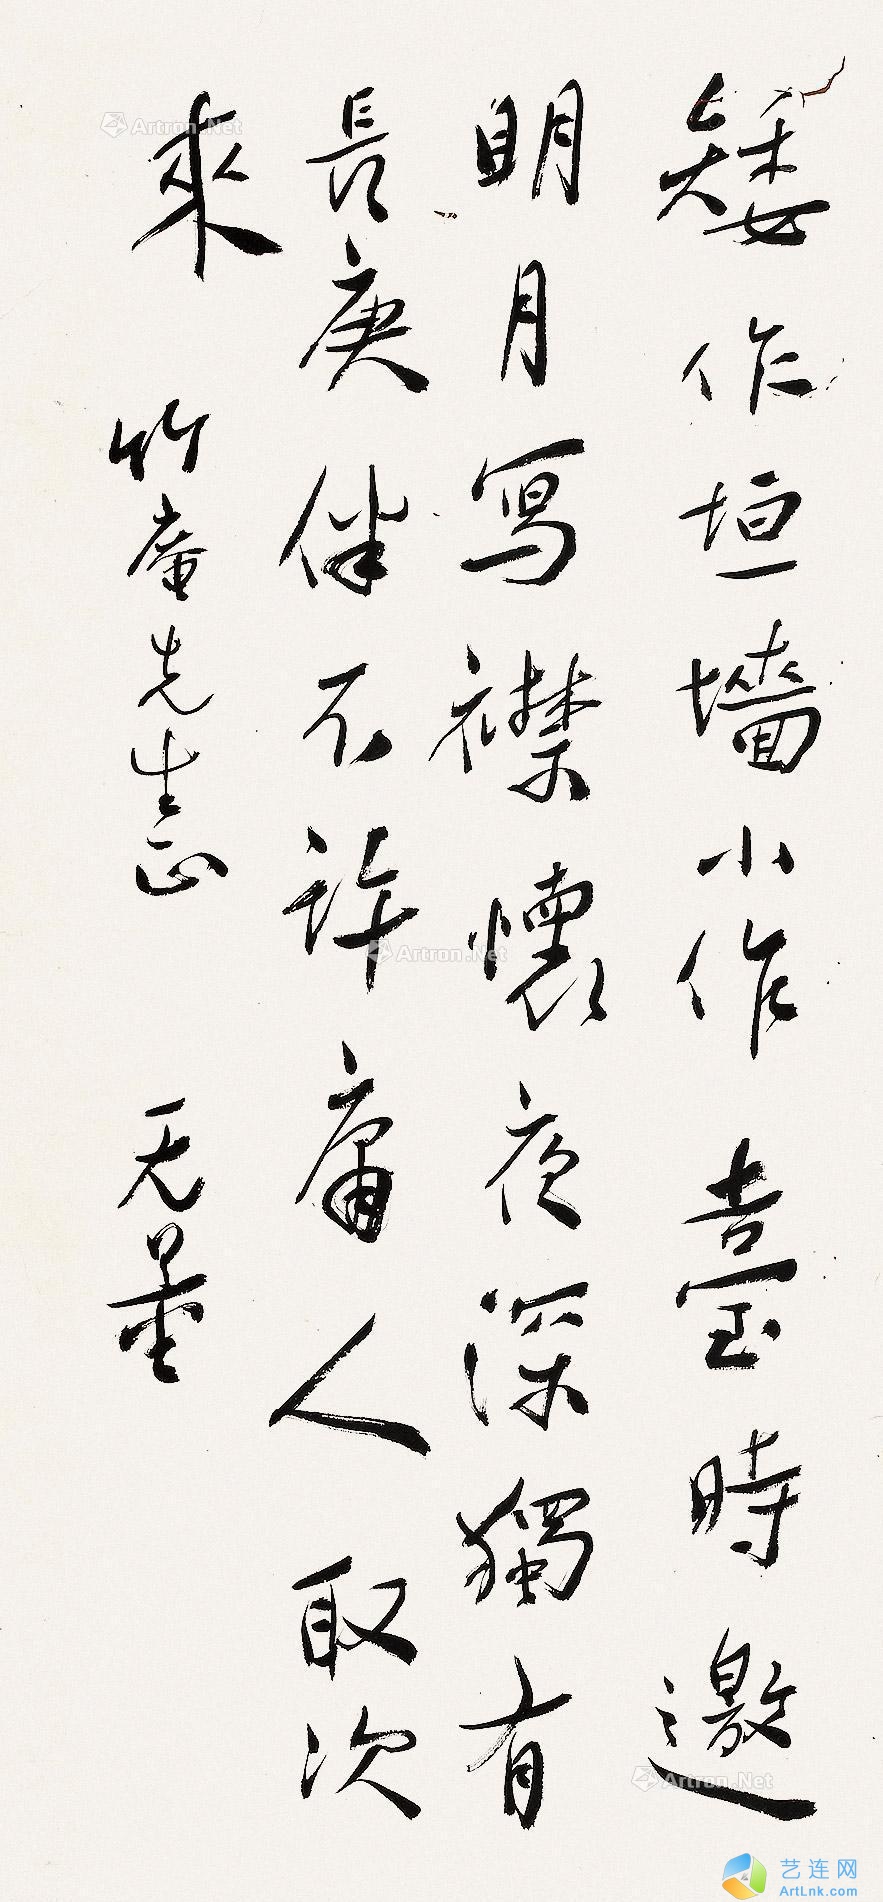 矮作垣墻小作臺時邀
明月寫襟懷夜深獨有
長庚伴不許庸人取次
來 竹庵先生正 无量
Artron.Net
Artron.Net
Artron.Net
艺连网
ArtLnk.com